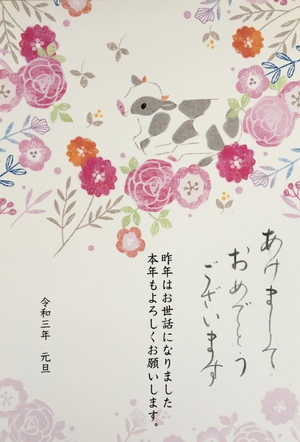 あけまして
おめでとう
ございます
昨年はお世話になりました
本年もよろしくお願いします。
令和三年　元旦